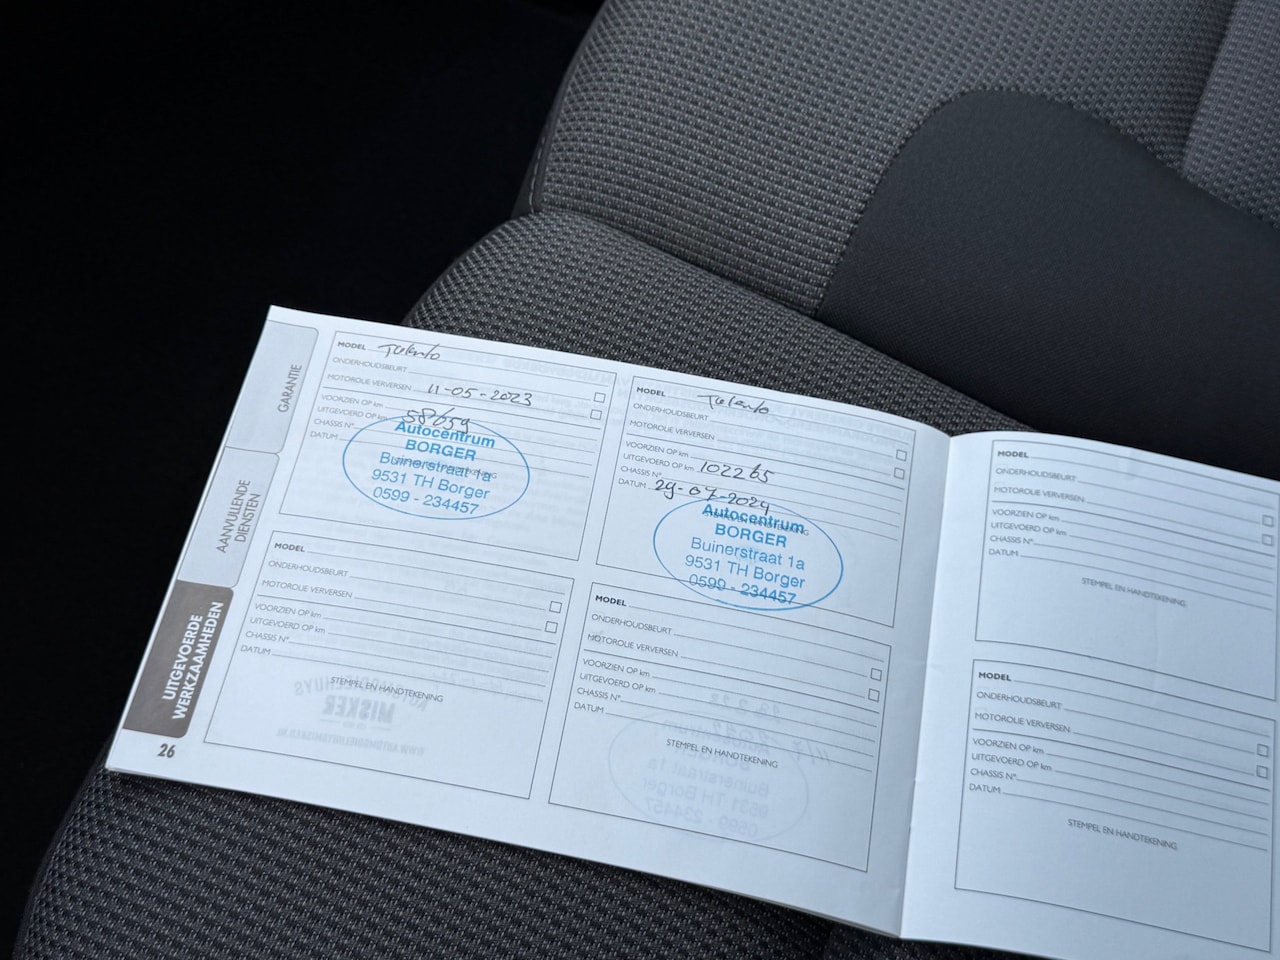 GARANTIE
AANVULLENDE
DIENSTEN
UITGEVOERDE
WERKZAAMHEDEN
26
MODEL Talento
ONDERHOUDSBEURT
MOTOROLIE VERVERSEN 11-05-2023
VOORZIEN OP km
UITGEVOERD OP km 58659
CHASSIS N°
DATUM
Autocentrum
BORGER
Buinerstraat 1a
9531 TH Borger
0599 - 234457
MODEL Talento
ONDERHOUDSBEURT
MOTOROLIE VERVERSEN
VOORZIEN OP km
UITGEVOERD OP km 102265
CHASSIS N°
DATUM 29-07-2024
Autocentrum
BORGER
Buinerstraat 1a
9531 TH Borger
0599 - 234457
MODEL
ONDERHOUDSBEURT
MOTOROLIE VERVERSEN
VOORZIEN OP km
UITGEVOERD OP km
CHASSIS N°
DATUM
STEMPEL EN HANDTEKENING
MODEL
ONDERHOUDSBEURT
MOTOROLIE VERVERSEN
VOORZIEN OP km
UITGEVOERD OP km
CHASSIS N°
DATUM
STEMPEL EN HANDTEKENING
MODEL
ONDERHOUDSBEURT
MOTOROLIE VERVERSEN
VOORZIEN OP km
UITGEVOERD OP km
CHASSIS N°
DATUM
STEMPEL EN HANDTEKENING
MODEL
ONDERHOUDSBEURT
MOTOROLIE VERVERSEN
VOORZIEN OP km
UITGEVOERD OP km
CHASSIS N°
DATUM
STEMPEL EN HANDTEKENING